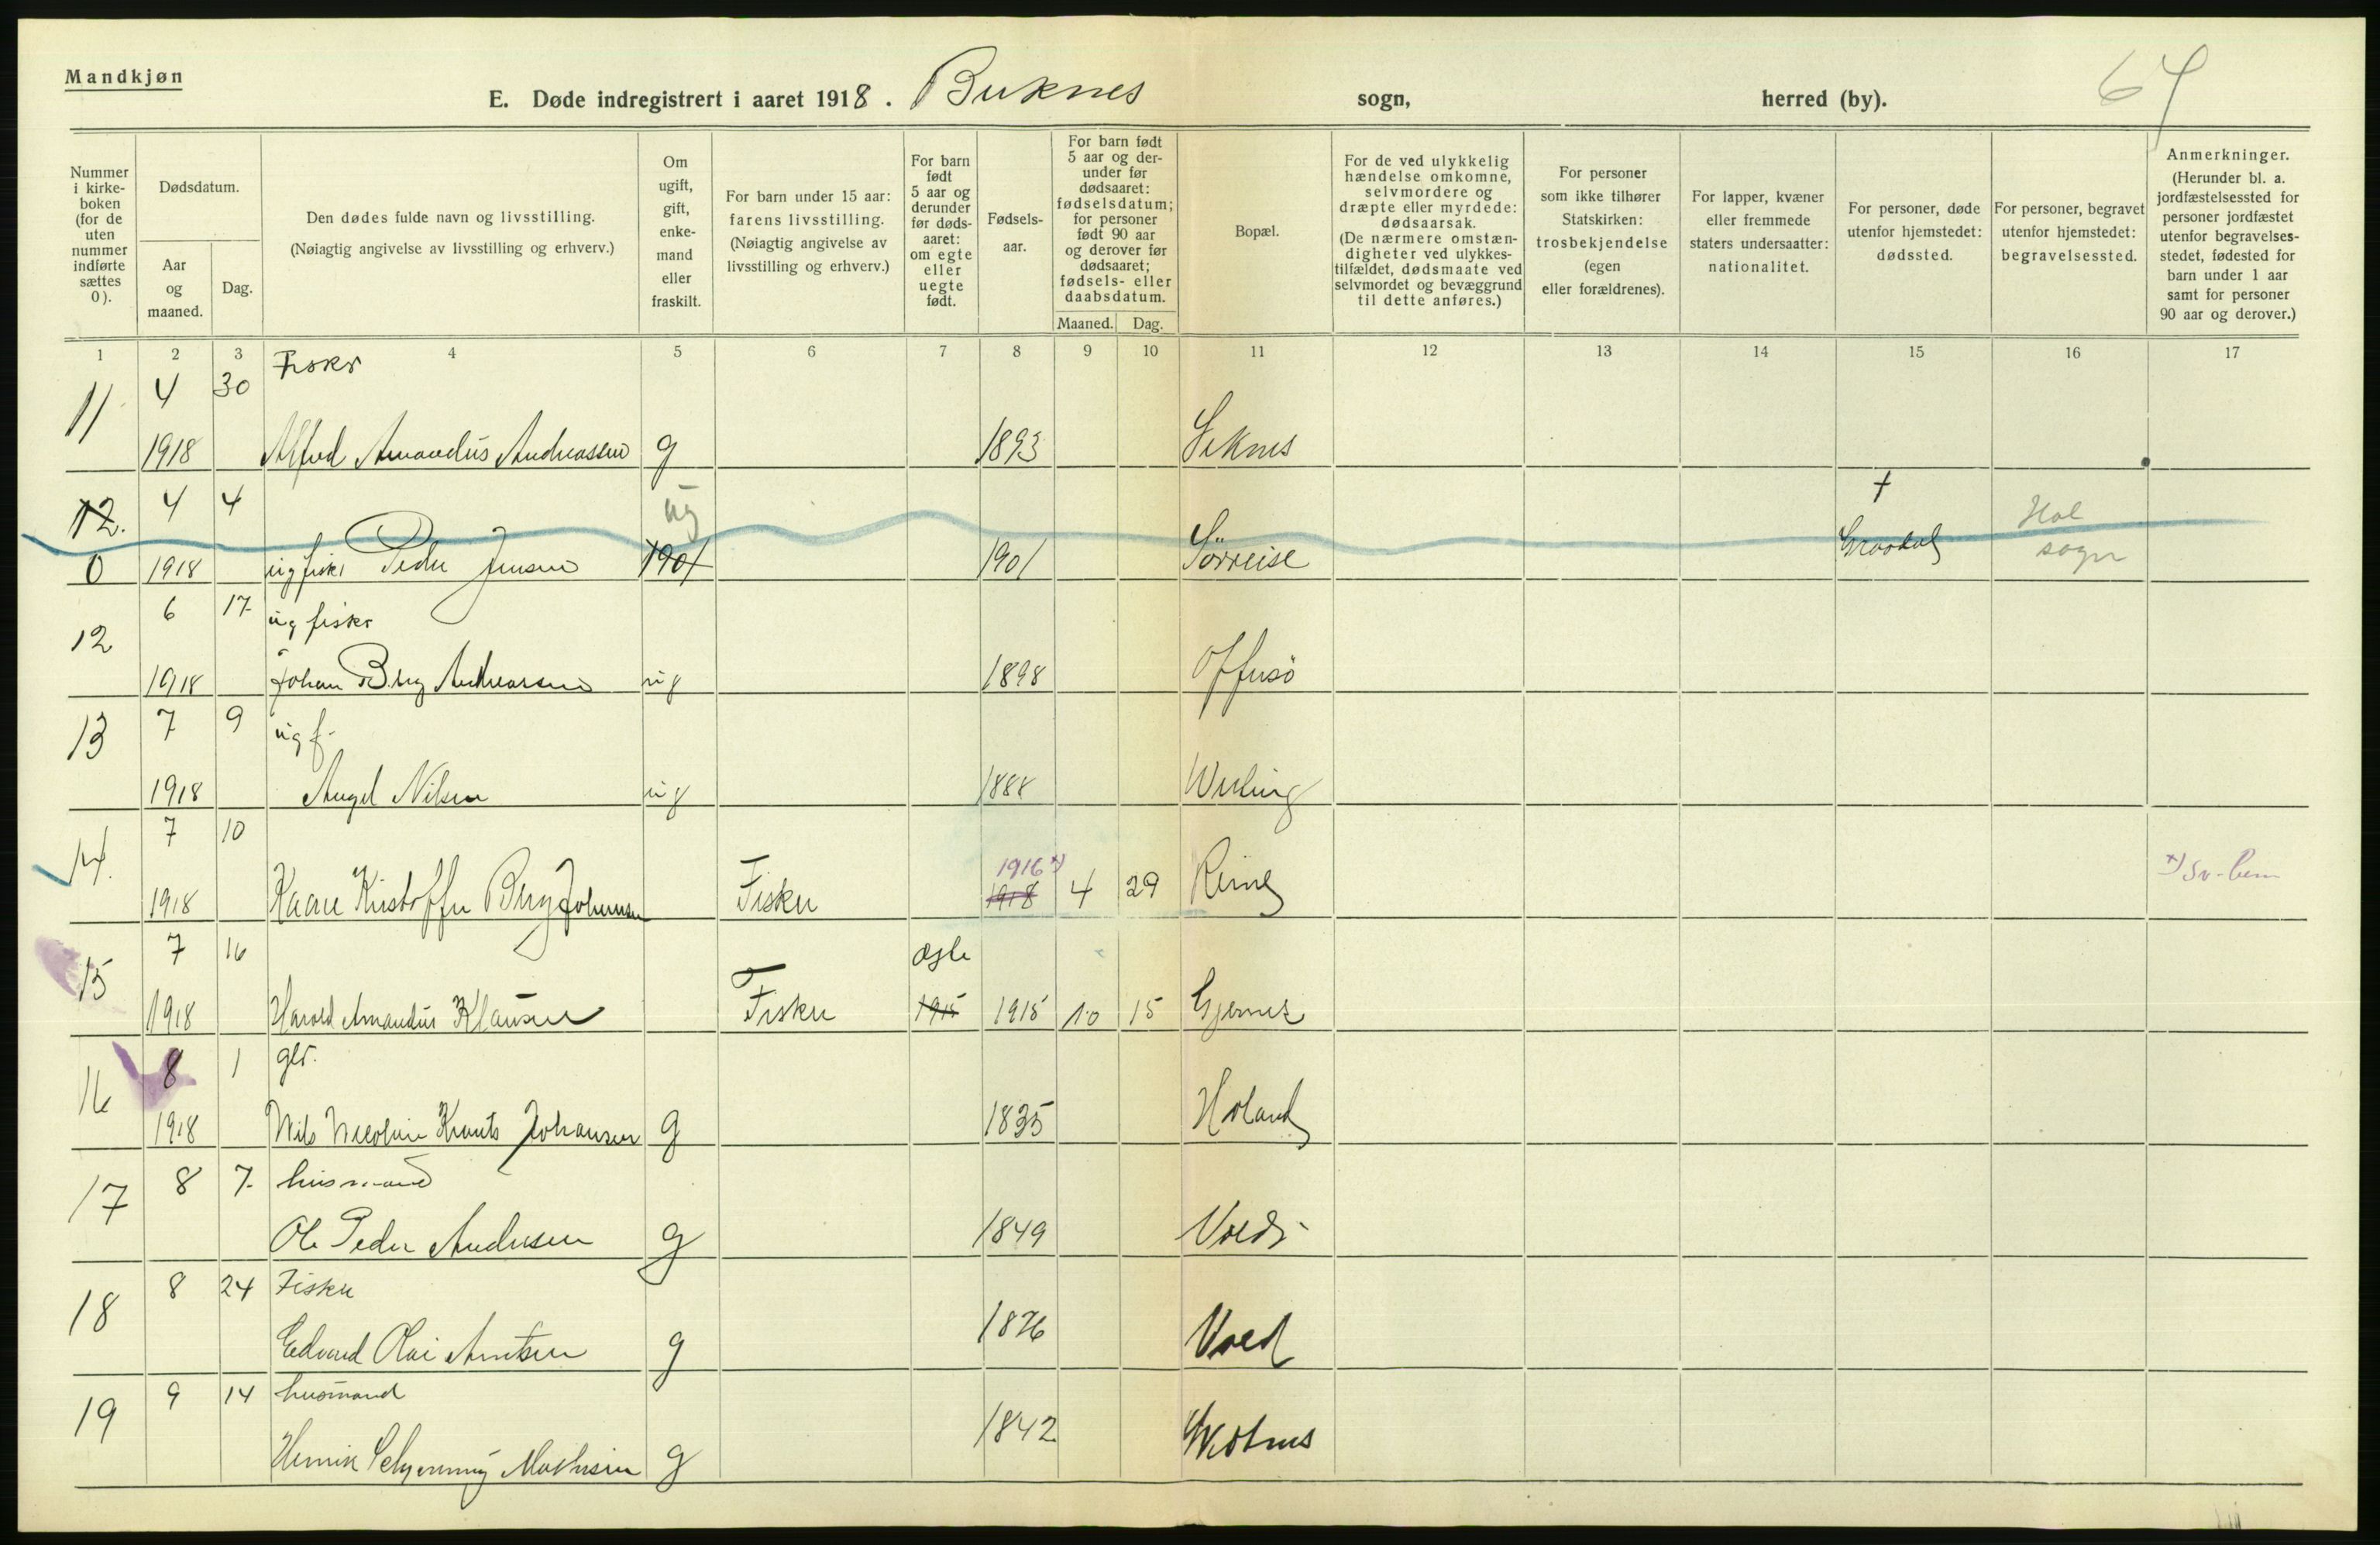 Mandkjøn
E. Døde indregistrert i aaret 1918. Buknes sogn, herred (by). 64
Nummer i kirke-boken (for de uten nummer indførte sættes 0).
Dødsdatum.
Aar og maaned.
Dag.
Den dødes fulde navn og livsstilling.
(Nøiagtig angivelse av livsstilling og erhverv.)
Om ugift, gift, enke-mand eller fraskilt.
For barn under 15 aar: farens livsstilling.
(Nøiagtig angivelse av livsstilling og erhverv.)
For barn født 5 aar og derunder før døds-aaret: om egte eller uegte født.
Fødsels-aar.
For barn født 5 aar og der-under før dødsaaret: fødselsdatum; for personer født 90 aar og derover før dødsaaret; fødsels- eller daabsdatum.
Maaned. Dag.
Bopæl.
For de ved ulykkelig hændelse omkomne, selvmordere og dræpte eller myrdede: dødsaarsak.
(De nærmere omstæn-digheter ved ulykkes-tilfældet, dødsmaate ved selvmordet og bevæggrund til dette anføres.)
For personer som ikke tilhører Statskirken: trosbekjendelse (egen eller forældrenes).
For lapper, kvæner eller fremmede staters undersaatter: nationalitet.
For personer, døde utenfor hjemstedet: dødssted.
For personer, begravet utenfor hjemstedet: begravelsessted.
Anmerkninger.
(Herunder bl. a. jordfæstelsessted for personer jordfæstet utenfor begravelses-stedet, fødested for barn under 1 aar samt for personer 90 aar og derover.)
1 2 3 4 5 6 7 8 9 10 11 12 13 14 15 16 17
11 4 30 Fisker
1918 Alfred Amandus Andreassen g 1893 Leknes
12. 4 4 ug † Hol
0 1918 ug fisker Peder Jensen 1901 1901 Sörreise sogn
12 6 17 ug fisker
1918 Johan Berg Andreassen ug 1898 Offersö
13 7 9 ug f.
1918 Angel Nilsen ug 1888
14. 7 10 1916 x)
1918 Kaare Kristoffer Berg Johansen Fisker 1918 4 29 x) Sv. bem
15 7 16 Ægte
1918 Harold Amandus Klausen Fisker 1915 1915 10 15
16 8 1
1918 Johansen g 1835 Holand
17 8 7. husmand
Ole Peder Andersen g 1849
18 8 24 Fisker
Edvard Olai Arntsen g 1876
19 9 14 husmand
Henrik g 1842